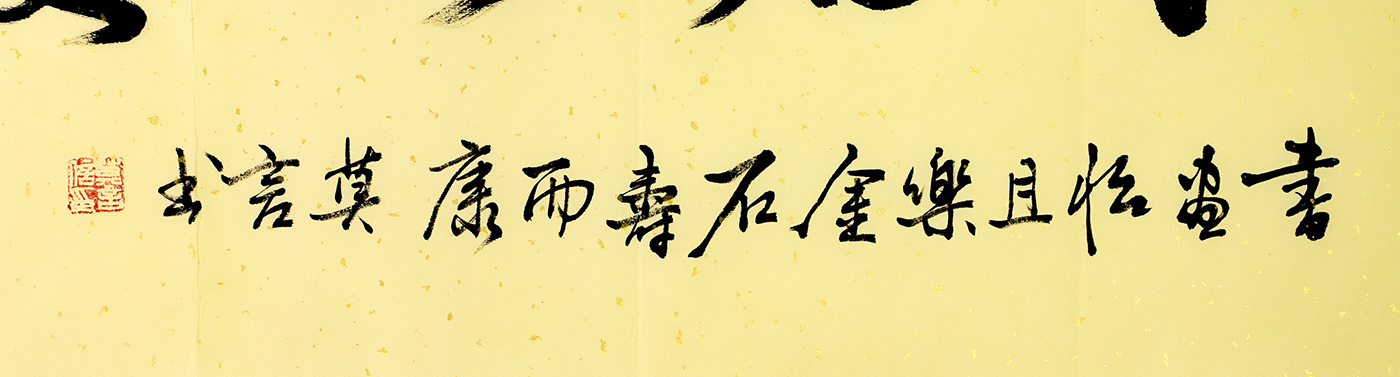 書畫怡且樂金石壽而康莫言书